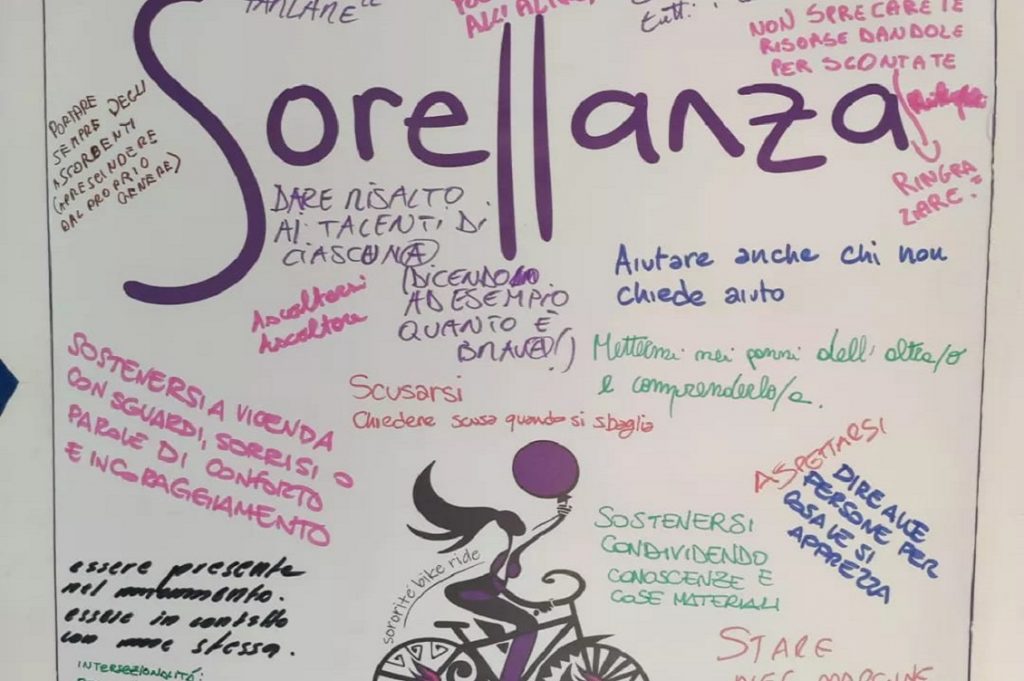 PARLARE
ALL'ALTRO
tutti
NON SPRECARE LE
RISORSE DANDOLE
PER SCONTATE
RINGRA
ZIARE
Sorellanza
PORTARE
SEMPRE DEGLI
ASSORBENTI
(A PRESCINDERE
DAL PROPRIO
GENERE)
DARE RISALTO
AI TALENTI DI
CIASCUNA
(DICENDO
AD ESEMPIO
QUANTO È
BRAVA!)
Ascoltarsi
Ascoltare
Aiutare anche chi non
chiede aiuto
Mettermi nei panni dell'altra/o
e comprenderlo/a.
Scusarsi
Chiedere scusa quando si sbaglia
SOSTENERSI A VICENDA
CON SGUARDI, SORRISI O
PAROLE DI CONFORTO
E INCORAGGIAMENTO
ASPETTARSI
DIRE ALLE
PERSONE PER
COSA LE SI
APPREZZA
SOSTENERSI
CONDIVIDENDO
CONOSCENZE E
COSE MATERIALI
sororité bike ride
essere presente
nel momento.
essere in contatto
con me stessa.
INTERSEZIONALITÁ:
STARE